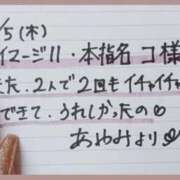 /5(木)
イマージュ・本指名 コ様
た.2人で2回もイチャイチャ
できて.うれしかったの♡
あゆみより